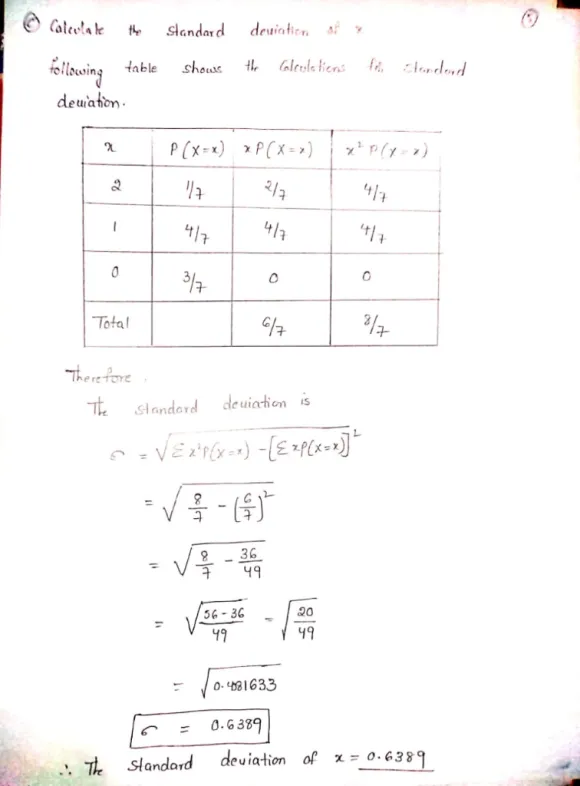 ⓒ Calculate the standard deviation of x
following table shows the Calculations for standard
deviation.
x P(X=x) x P(X=x) x² P(X=x)
2 1/7 2/7 4/7
1 4/7 4/7 4/7
0 3/7 0 0
Total 6/7 8/7
Therefore,
The standard deviation is
σ = √Σx²P(X=x) - [ΣxP(X=x)]²
= √8/7 - (6/7)²
= √8/7 - 36/49
= √56-36/49 = √20/49
= √0.481633
σ = 0.6389
∴ The standard deviation of x = 0.6389